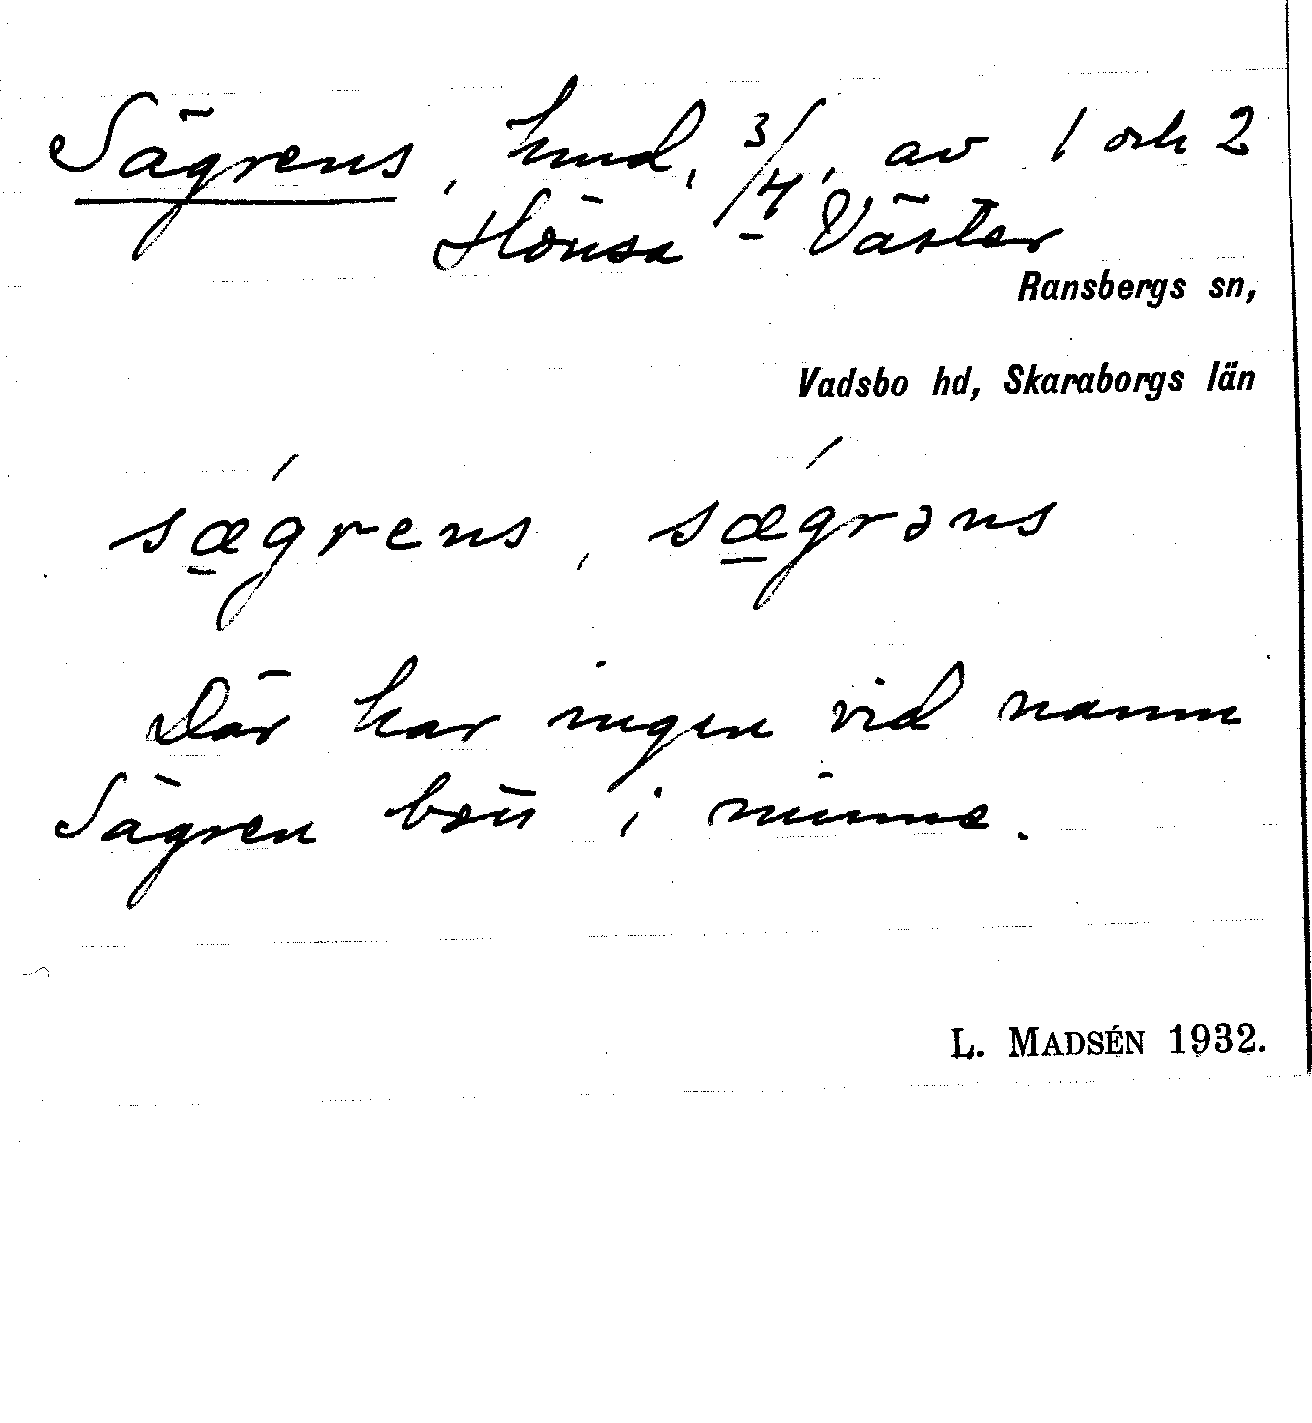 Sägrens, hmd, 3/4, av 1 och 2
Hönsa - Väster
Ransbergs sn,
Vadsbo hd, Skaraborgs län
sægrens, sægrəns
Där har ingen vid namn
Sägren bott i minne.
L. MADSÉN 1932.